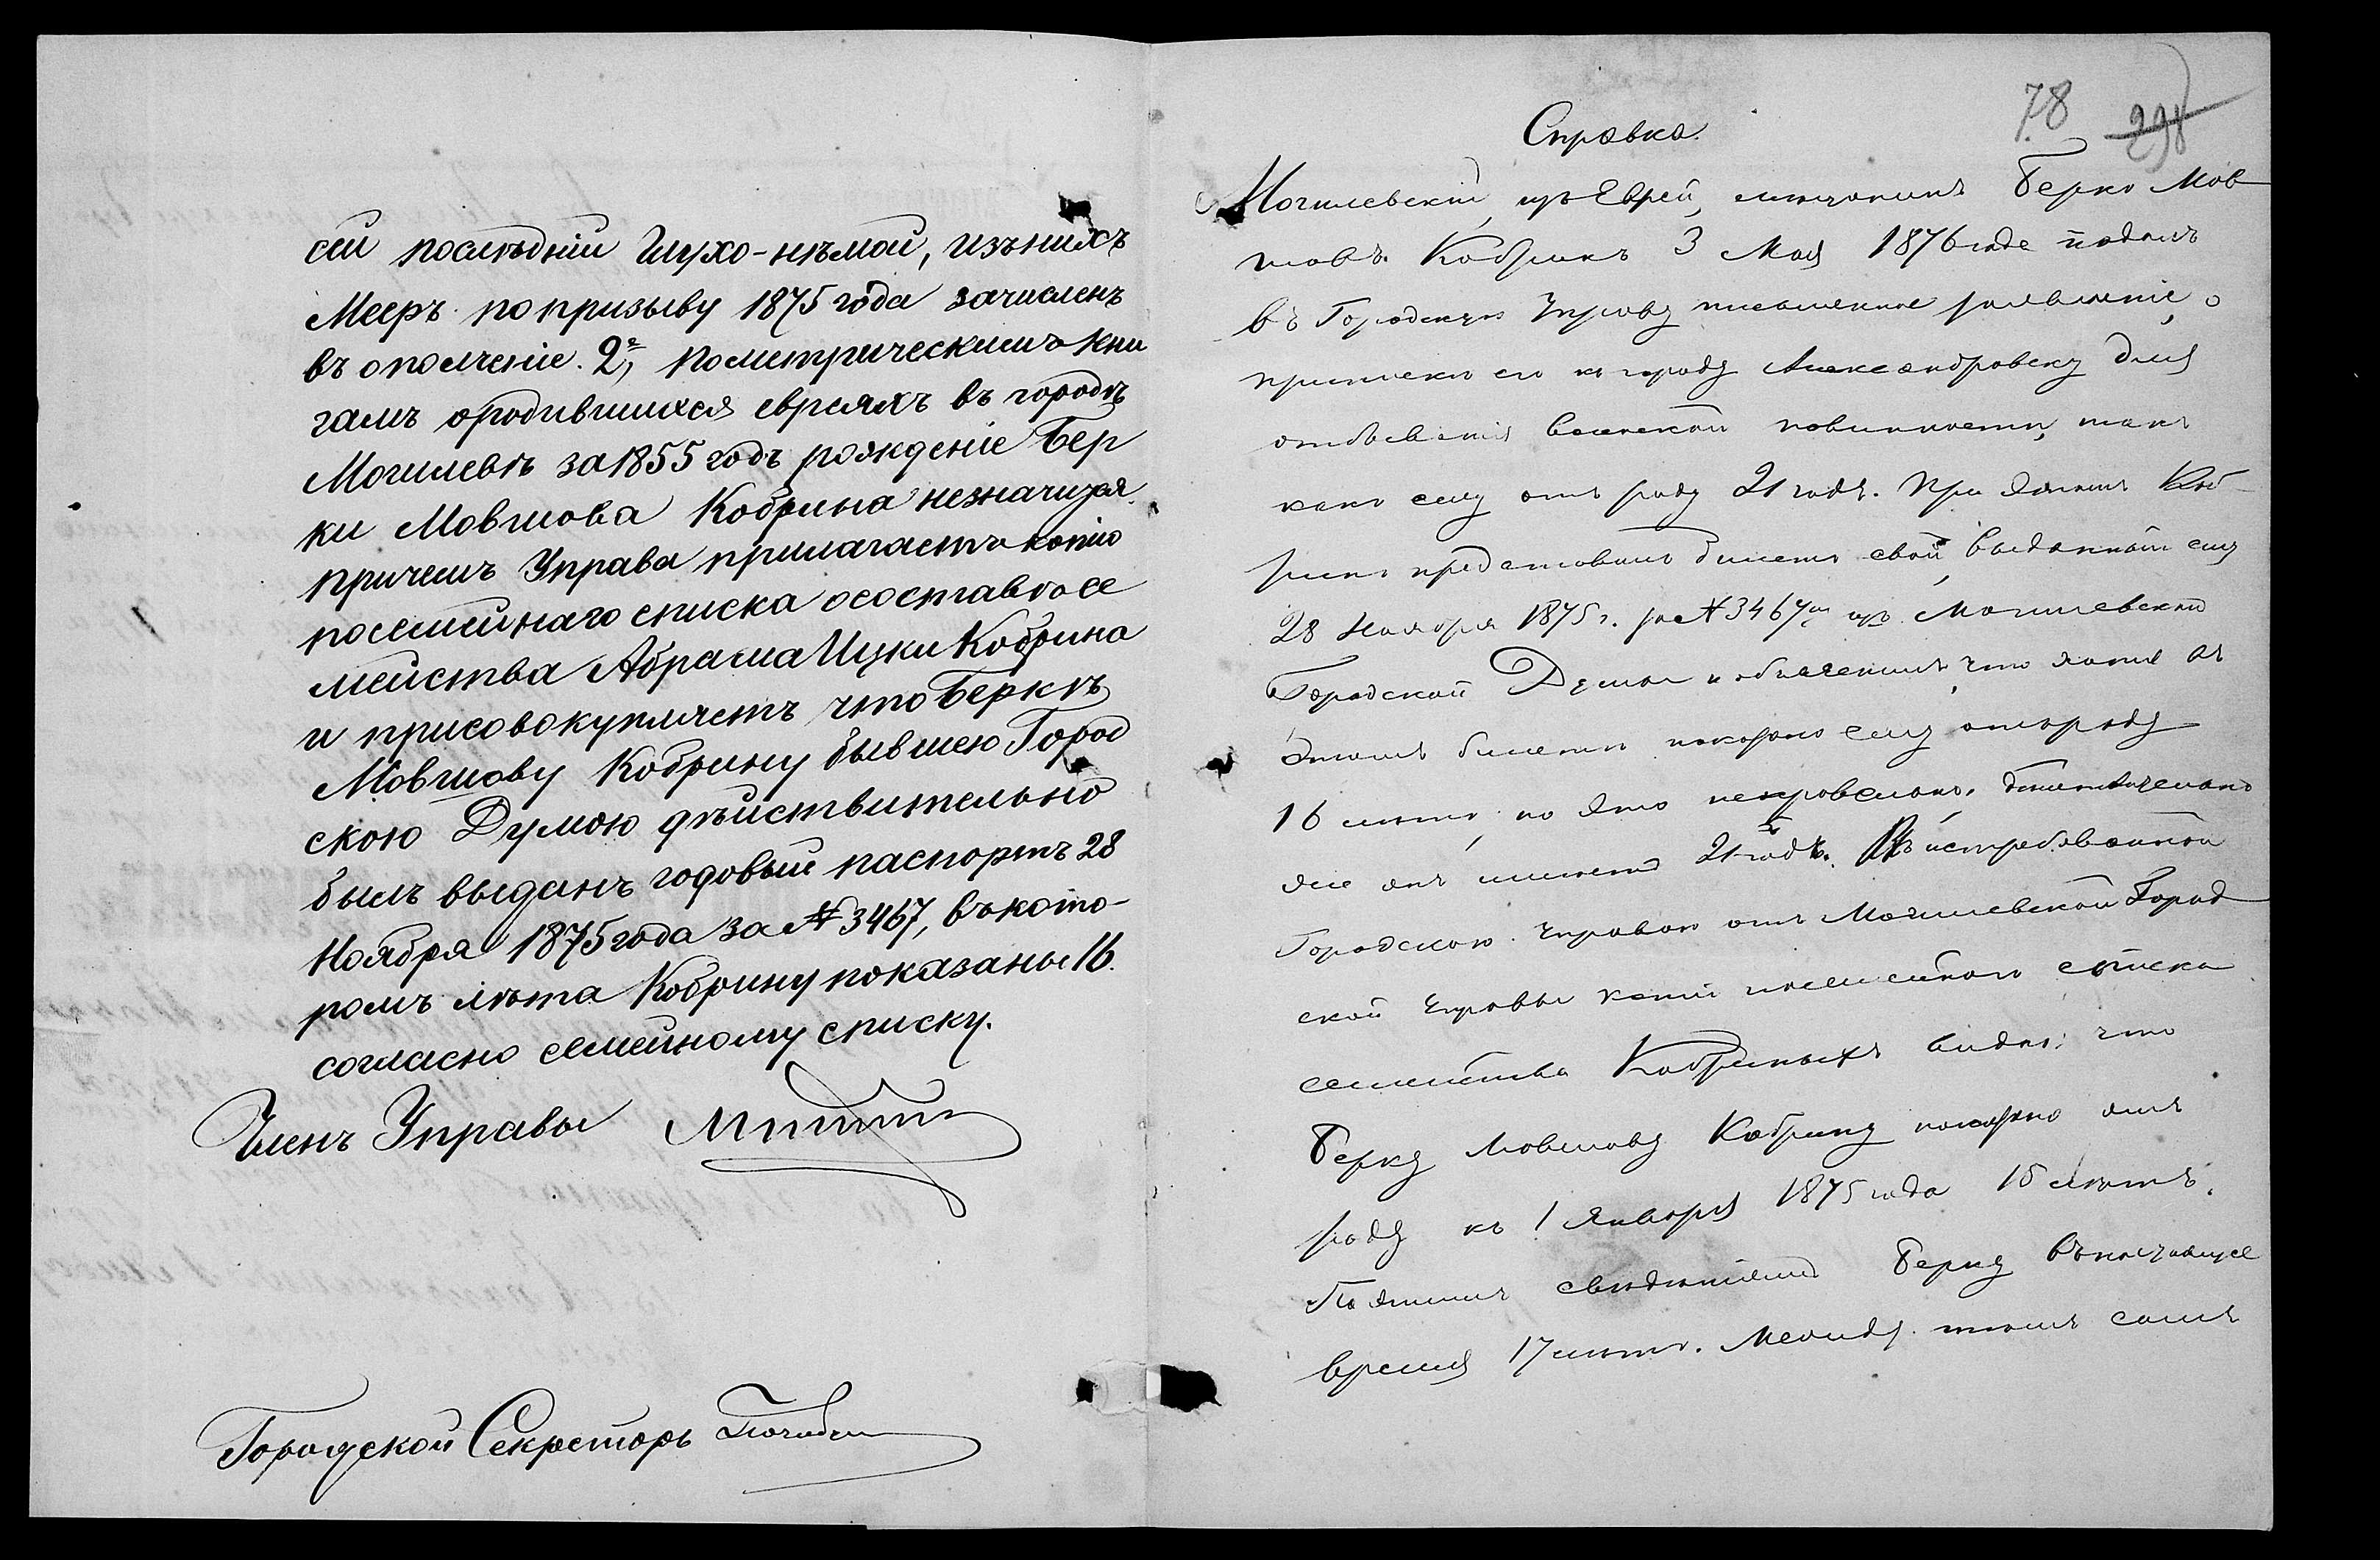 сей послѣднiй глухо-нѣмой, изъ нихъ
Мееръ по призыву 1875 года зачисленъ
въ ополченiе. 2е, По метрическимъ кни
гамъ о родившихся евреяхъ въ городѣ
Могилевѣ за 1855 годъ рожденiе Бер
ки Мовшова Кобрина не значится
причемъ Управа прилагаетъ копiю
посемейнаго списка о составѣ се
мейства Абрама Ицки Кобрина
и присовокупляетъ что Беркѣ
Мовшову Кобрину бывшею Город
скою Думою дѣйствительно
былъ выданъ годовый паспортъ 28
Ноября 1875 года за № 3467, въ кото-
ромъ лѣта Кобрину показаны 16.
согласно семейному списку.
Членъ Управы
Городской Секретарь
78 298
Справка.
Могилевскiй, изъ Еврей, мѣщанинъ Берко Мов
шовъ Кобринъ 3 Мая 1876 года подалъ
въ Городскую Управу письменное заявленiе, о
припискѣ его къ городу Александровску для
отбыванiя воинской повинности, такъ
какъ ему отъ роду 21 годъ. При этомъ Коб-
ринъ представилъ билетъ свой, выданный ему
28 Ноября 1875 г. за № 3467 изъ Могилевской
Городской Думы и объяснилъ, что хотя въ
этомъ билетѣ показано ему отъ роду
16 лѣтъ, но это неправильно, дѣйствительно
же онъ имѣетъ 21 годъ. Въ истребованной
Городскою Управою отъ Могилевской Город
ской Управы копiи посемейнаго списка
семейства Кобриныхъ видно: что
Берку Мовшову Кобрину показано отъ
роду къ 1 Января 1875 года 15 лѣтъ.
По этимъ свѣдѣнiямъ Берку въ настоящее
время 17 лѣтъ. Между тѣмъ самъ